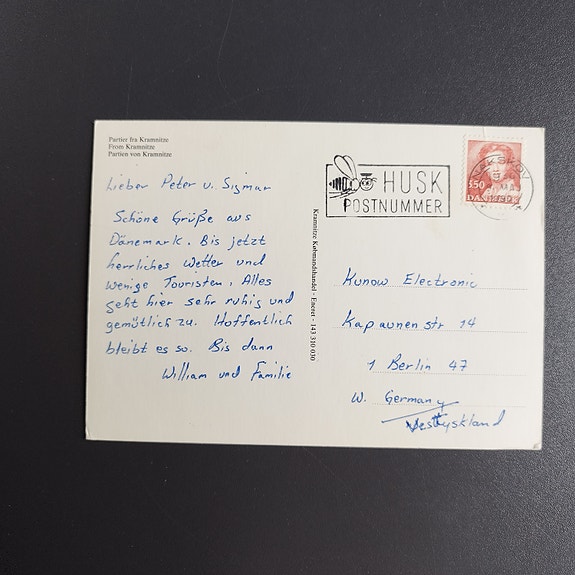 Partier fra Kramnitze
From Kramnitze
Partien von Kramnitze
Lieber Peter u. Sigmar
Schöne Grüße aus
Dänemark. Bis jetzt
herrliches Wetter und
wenige Touristen, Alles
geht hier sehr ruhig und
gemütlich zu. Hoffentlich
bleibt es so. Bis dann
William und Familie
Kramnitze Købmandshandel - Eneret - 143 310 030
HUSK
POSTNUMMER
350
DANMARK
NAKSKOV
Kunow Electronic
Kapaunenstr 14
1 Berlin 47
W. Germany
Vesttyskland